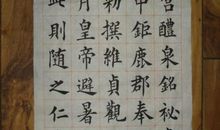 宮醴泉銘祕
中鉅鹿郡奉
勑撰維貞觀
月皇帝避暑
此則隨之仁